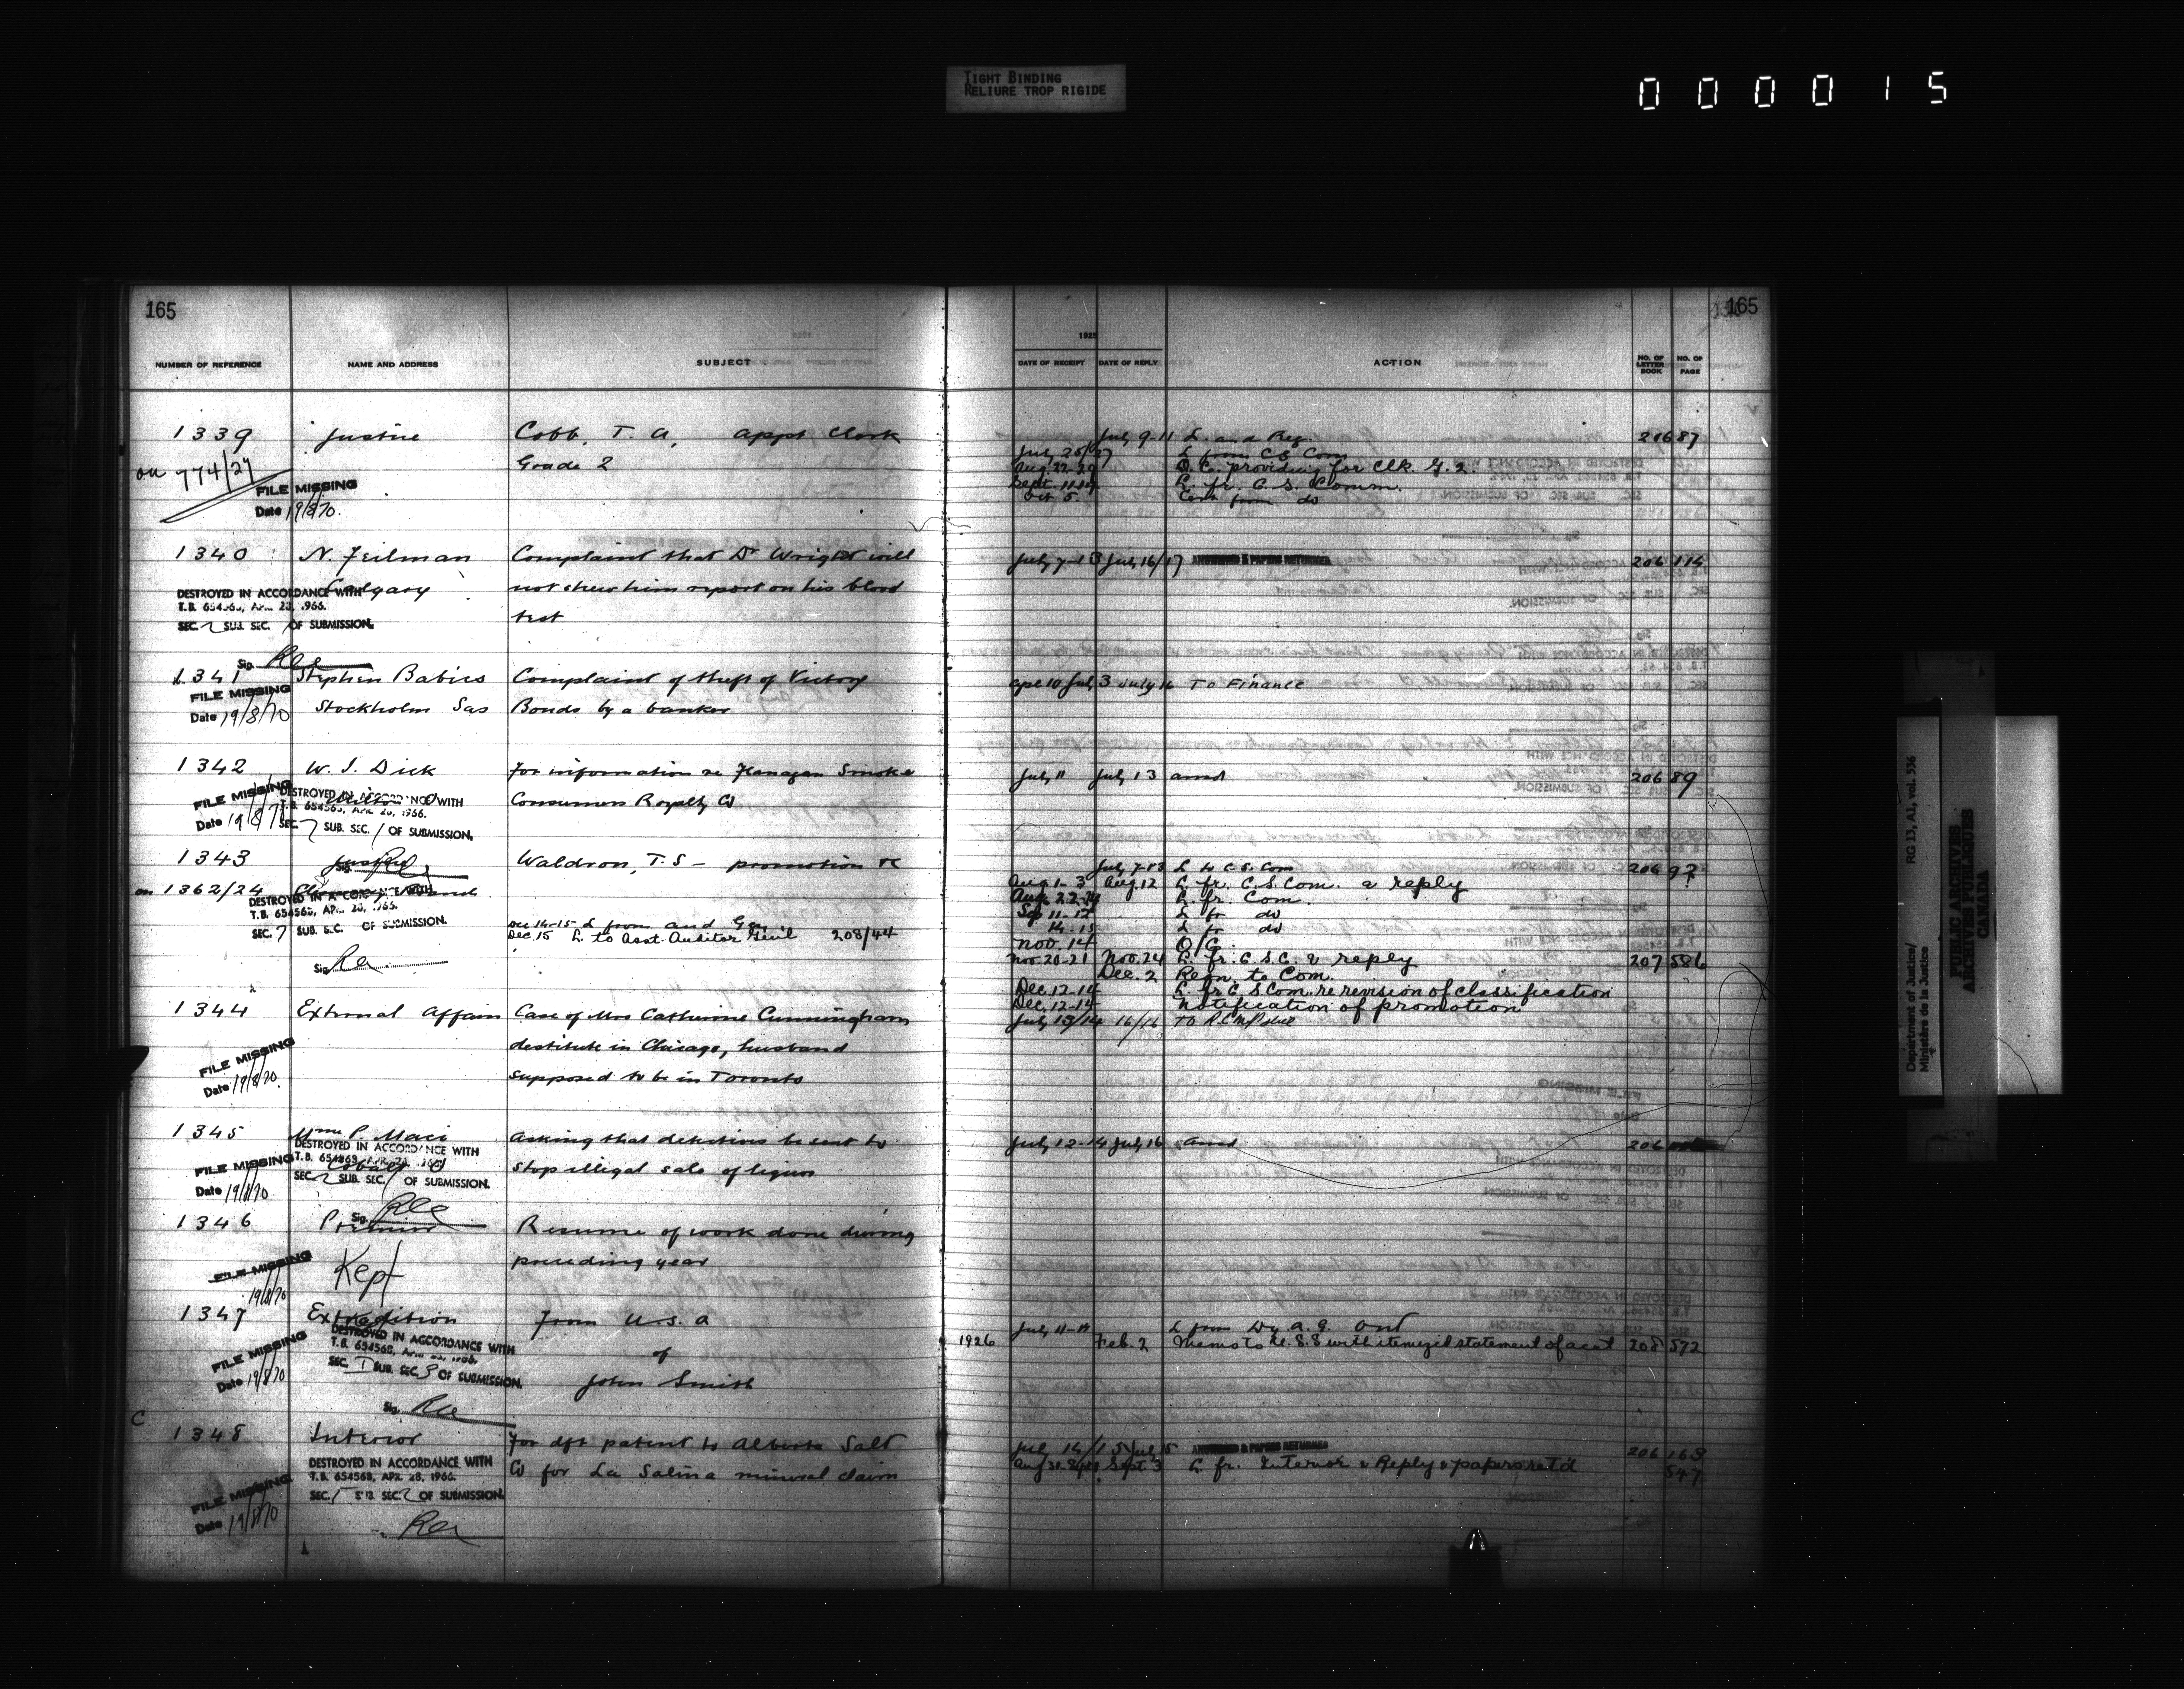 TIGHT BINDING
RELIURE TROP RIGIDE
000015
165
165
1925
NUMBER OF REFERENCE
NAME AND ADDRESS
SUBJECT
DATE OF RECEIPT
DATE OF REPLY
ACTION
NO. OF LETTER BOOK
NO. OF PAGE
1339
Justice
Cobb, T. A, appt Clerk
Grade 2
on 774/27
FILE MISSING
Date 19/8/70.
July 9-11 L. and Reg.
206 87
L from CS Com
Aug. 22-29 O.C. providing for Clk. G. 2.
L. fr. C. S. Comm.
Oct 5. from do
1340
N. Feilman
Calgary
Complaint that Dr Wright will
not shew him report on his blood
test
DESTROYED IN ACCORDANCE WITH
T.B. 654568, APR. 28, 1966.
SEC. 2 SUB. SEC. 1 OF SUBMISSION.
Sig.
July 7-13 July 16/17 ANSWERED & PAPERS RETURNED
206 114
1341
Stephen Babics
Stockholm Sas
Complaint of theft of Victory
Bonds by a banker
FILE MISSING
Date 19/8/70
July 16 To Finance
1342
W. J. Dick
For information re Flanagan Smoke
Consumers Royalty Co
FILE MISSING
Date 19/8/7
DESTROYED IN ACCORDANCE WITH
T.B. 654568, APR. 28, 1966.
SEC. 7 SUB. SEC. 1 OF SUBMISSION.
July 11 July 13 ansd
206 89
1343
Justice
Waldron, T. S - promotion re
on 1362/24
DESTROYED IN ACCORDANCE WITH
T.B. 654568, APR. 28, 1966.
SEC. 7 SUB. SEC. OF SUBMISSION.
Sig.
Dec 14-15 L from Aud Gen
Dec. 15 L. to Asst. Auditor Genl 208/44
July 7-13 L to C. S. Com
206 92
Aug. 1-3 Aug. 12 L. fr. C. S. Com. & reply
L. fr. Com.
Sep 11-12 L fr do
14-15 L fr do
Nov. 14 O/C.
Nov. 20-21 Nov. 24 L. fr. C. S. C. & reply
207 586
Dec. 2 Recn. to Com.
Dec. 12-14 L. fr C. S Com. re revision of classification
Dec. 12-14 Notification of promotion
1344
External Affairs
Case of Mrs Catherine Cunningham
destitute in Chicago, husband
supposed to be in Toronto
FILE MISSING
Date 19/8/70.
July 13/14 16/16 To R.C.M Police
1345
Mme P. Maci
Cobalt O
Asking that detectives be sent to
stop illegal sale of liquor
DESTROYED IN ACCORDANCE WITH
T.B. 654568, APR. 28, 1966
SEC. 2 SUB. SEC. 1 OF SUBMISSION.
FILE MISSING
Date 19/8/70
Sig.
July 12-14 July 16 Ansd
206
1346
Premier
Resume of work done during
preceding year
FILE MISSING
19/8/70
Kept
1347
Extradition
From U. S. A
of
John Smith
DESTROYED IN ACCORDANCE WITH
T.B. 654568, APR. 28, 1966.
SEC. 1 SUB. SEC. 3 OF SUBMISSION.
FILE MISSING
Date 19/8/70
Sig.
L from Dy. A. G. Ont
1926 Feb. 2 Memo to U. S. S with itemized statement of acct 208 572
C
1348
Interior
For dft patent to Alberta Salt
Co for La Salina mineral claim
DESTROYED IN ACCORDANCE WITH
T.B. 654568, APR. 28, 1966.
SEC. 1 SUB. SEC. 2 OF SUBMISSION.
FILE MISSING
Date 19/8/70
July 14/15 July 15 ANSWERED & PAPERS RETURNED
206 163
Sept. 3 L. fr. Interior & Reply & papers retd
547
Department of Justice/ RG 13, A1, vol. 536
Ministère de la Justice
PUBLIC ARCHIVES
ARCHIVES PUBLIQUES
CANADA